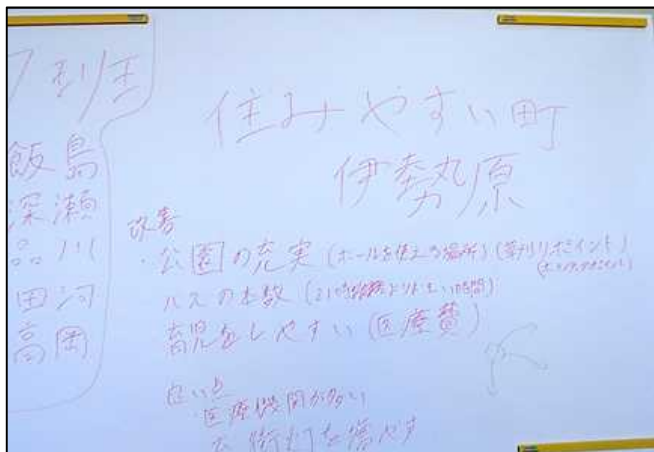 ファミリー
飯島
深瀬
品川
田河
高岡
住みやすい町
伊勢原
改善
・公園の充実(ボールを使える場所)(草刈りポイント)
バスの本数
育児をしやすい(医療費)
良い点
医療機関が多い
街灯を増やす